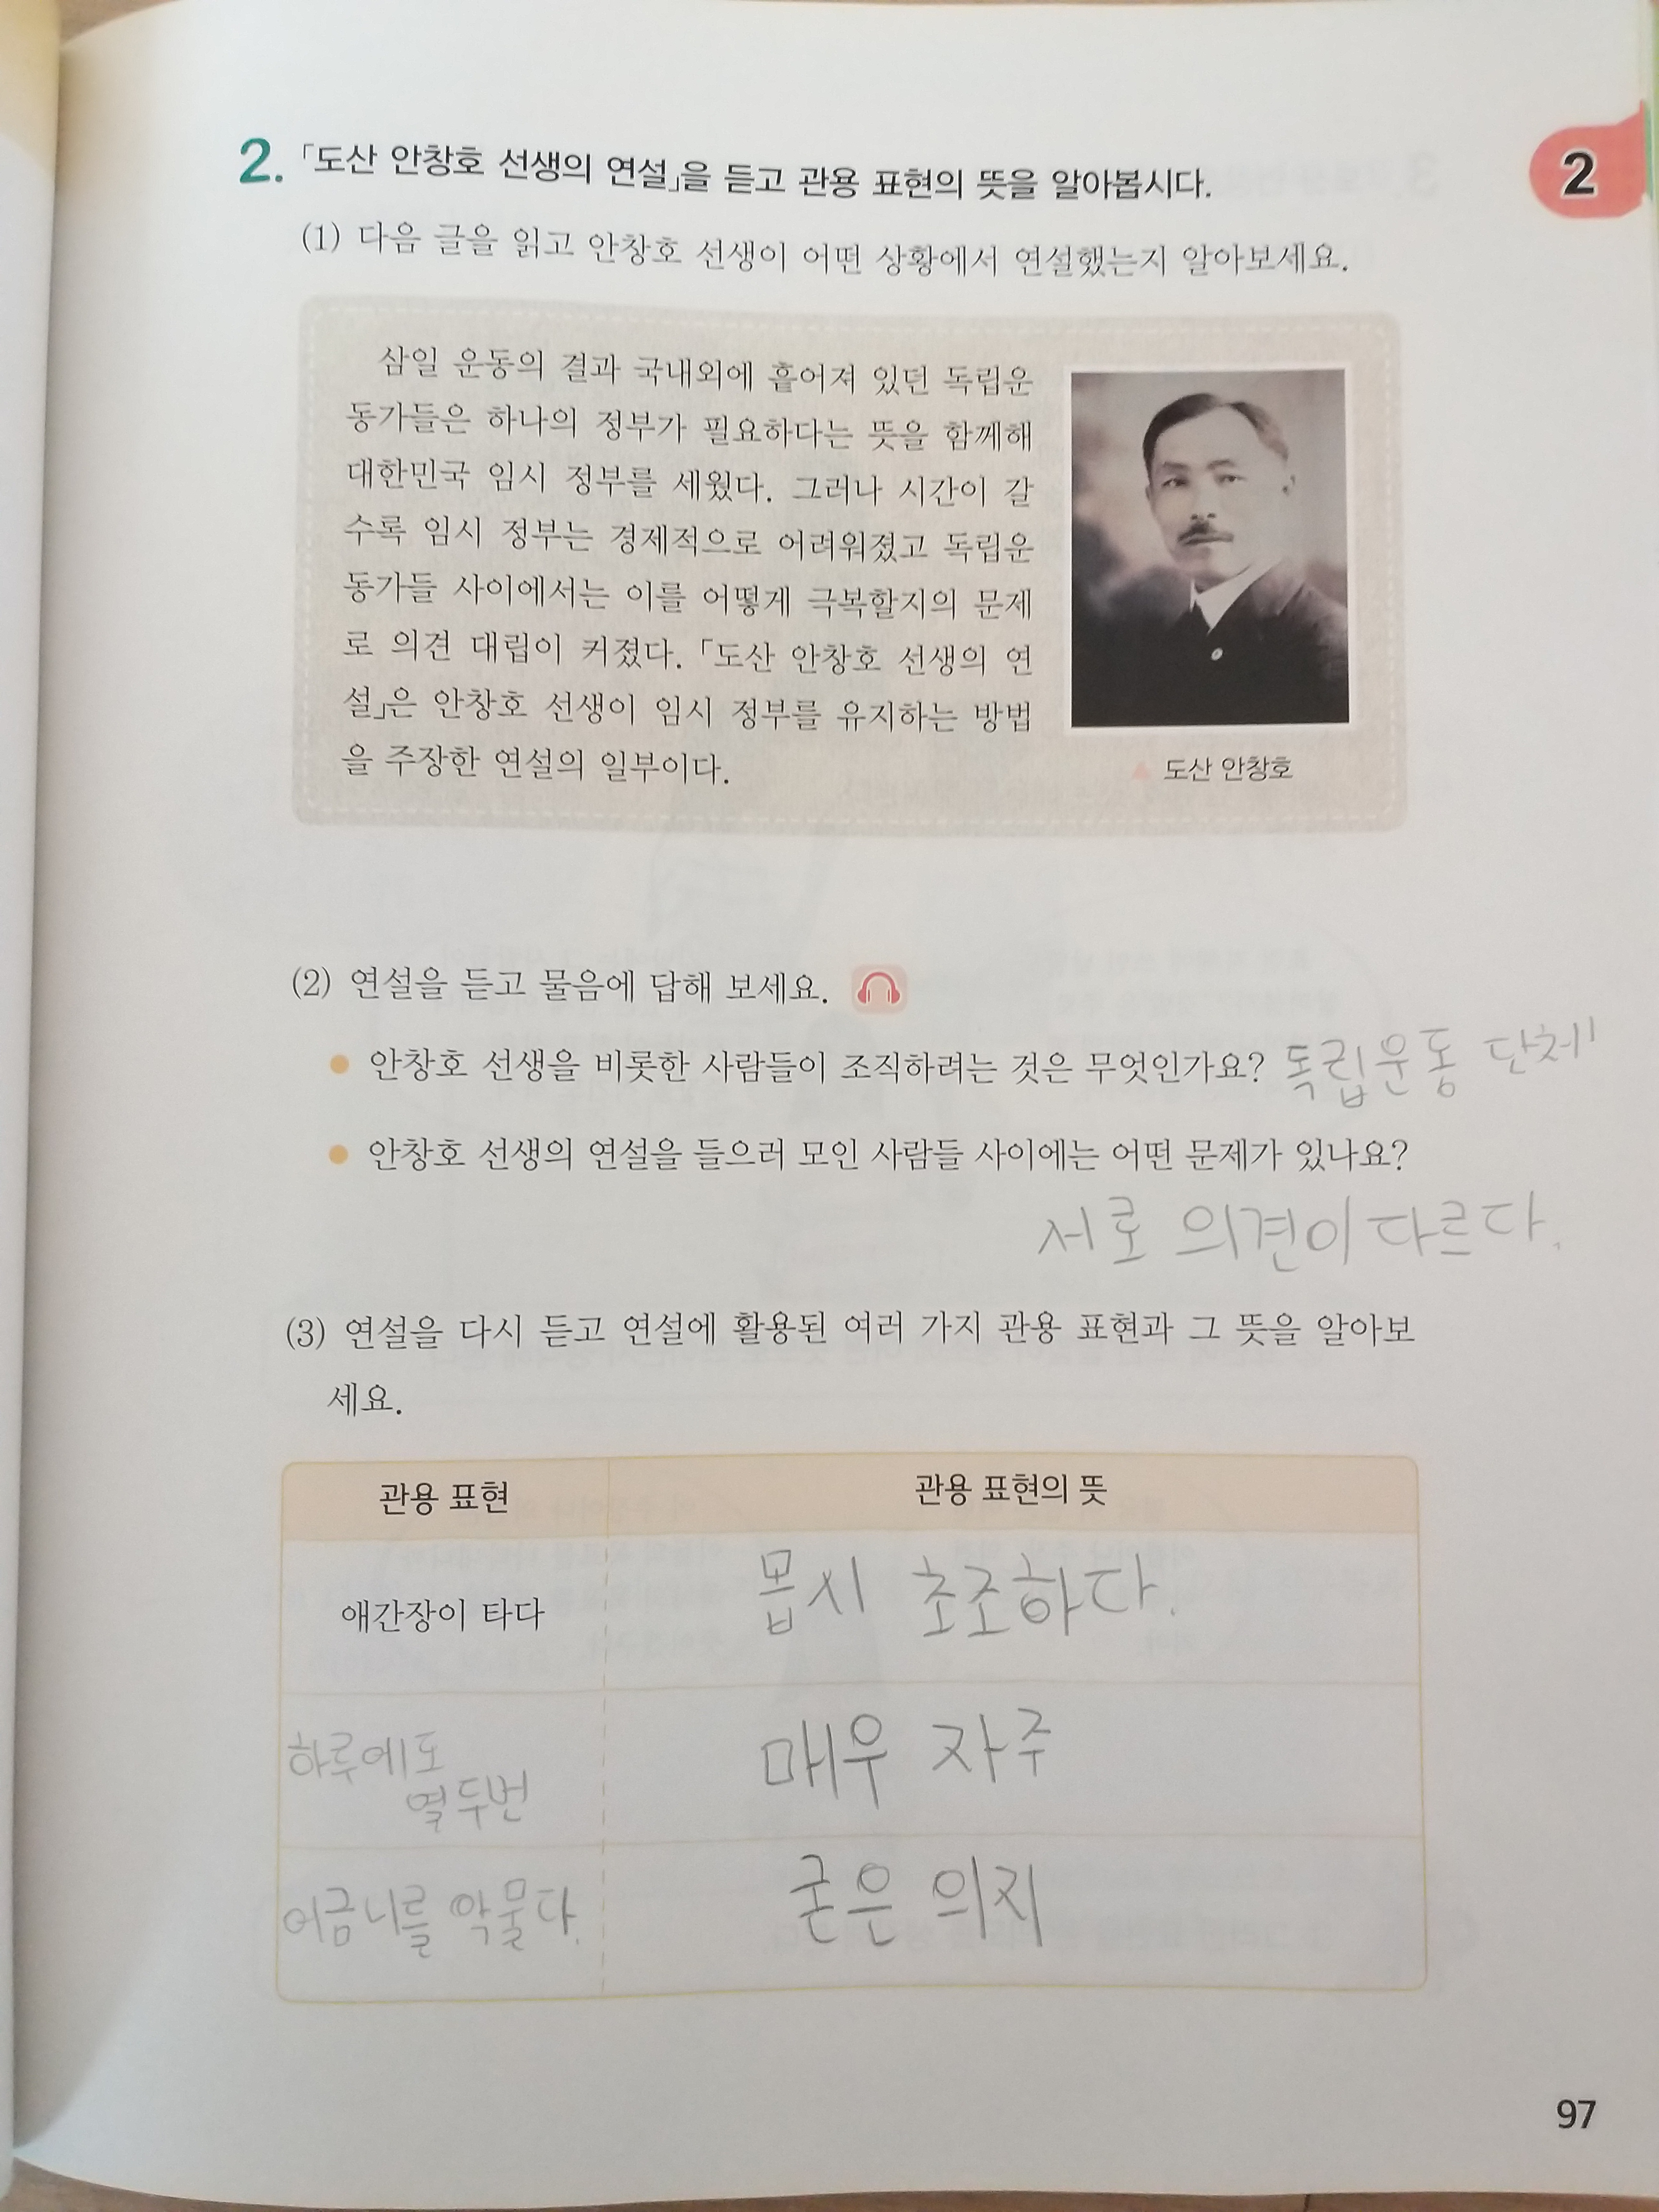 2
2. 「도산 안창호 선생의 연설」을 듣고 관용 표현의 뜻을 알아봅시다.
(1) 다음 글을 읽고 안창호 선생이 어떤 상황에서 연설했는지 알아보세요.
삼일 운동의 결과 국내외에 흩어져 있던 독립운
동가들은 하나의 정부가 필요하다는 뜻을 함께해
대한민국 임시 정부를 세웠다. 그러나 시간이 갈
수록 임시 정부는 경제적으로 어려워졌고 독립운
동가들 사이에서는 이를 어떻게 극복할지의 문제
로 의견 대립이 커졌다. 「도산 안창호 선생의 연
설」은 안창호 선생이 임시 정부를 유지하는 방법
을 주장한 연설의 일부이다.
▲ 도산 안창호
(2) 연설을 듣고 물음에 답해 보세요.
● 안창호 선생을 비롯한 사람들이 조직하려는 것은 무엇인가요? 독립운동 단체
● 안창호 선생의 연설을 들으러 모인 사람들 사이에는 어떤 문제가 있나요?
서로 의견이 다르다.
(3) 연설을 다시 듣고 연설에 활용된 여러 가지 관용 표현과 그 뜻을 알아보
세요.
관용 표현 관용 표현의 뜻
애간장이 타다 몹시 초조하다.
하루에도
열두번 매우 자주
어금니를 악물다. 굳은 의지
97